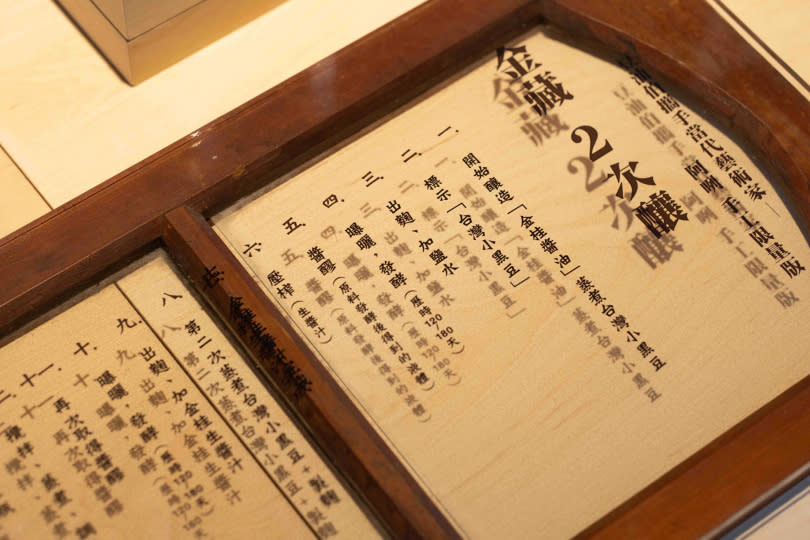 豆油伯攜手當代藝術家
手工限量版
金藏 2次釀
一. 開始釀造「金桂醬油」蒸煮台灣小黑豆
二. 標示「台灣小黑豆」
三. 出麴、加鹽水
四. 曝曬、發酵(歷時120 180天)
五. 醬醪(原料發酵後得到的液體)
六. 壓榨(生醬汁)
七. 金桂生醬汁
八. 第二次蒸煮台灣小黑豆+製麴
九. 出麴、加金桂生醬汁
十. 曝曬、發酵(歷時120 180天)
十一. 再次取得醬醪
攪拌、蒸煮、